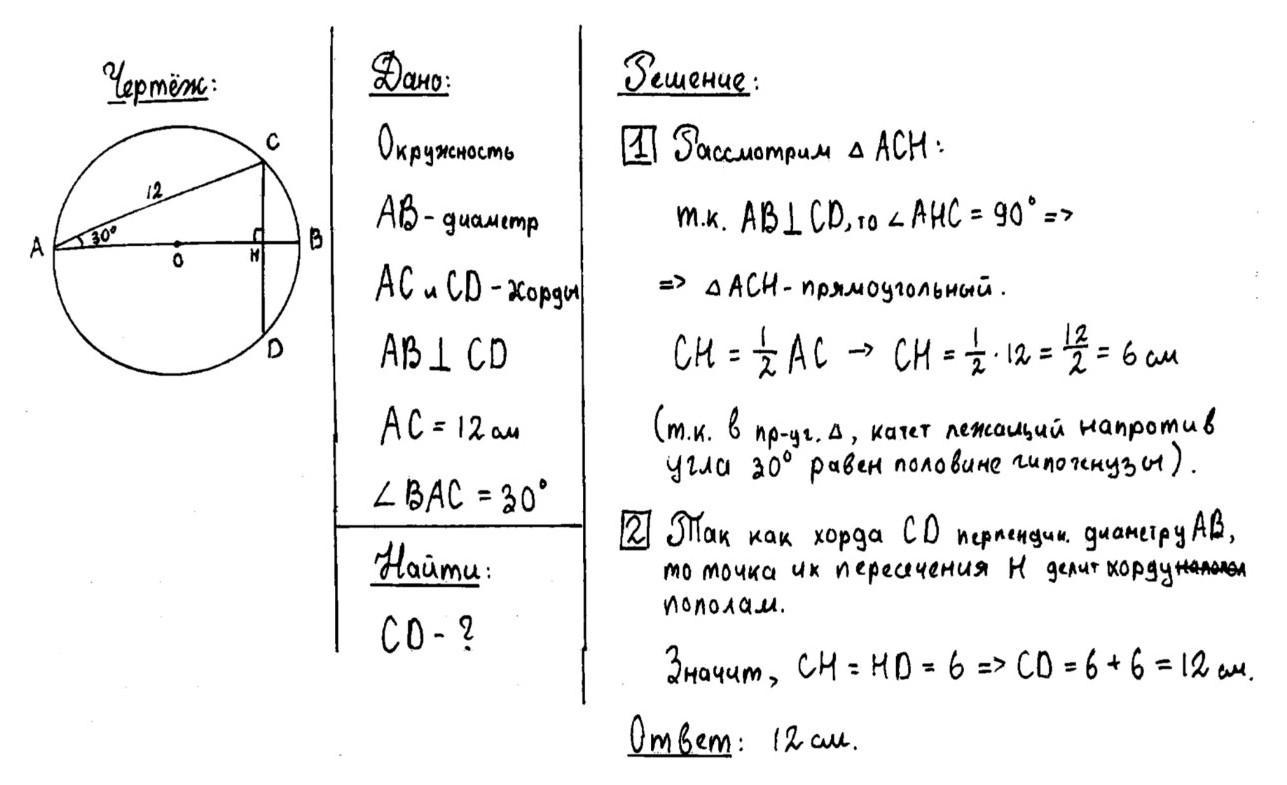 Чертёж:
C
12
A
30°
O
H
B
D
Дано:
Окружность
AB - диаметр
AC и CD - хорды
AB ⊥ CD
AC = 12 см
∠ BAC = 30°
Найти:
CD - ?
Решение:
1 Рассмотрим △ ACH:
т.к. AB ⊥ CD, то ∠ AHC = 90° =>
=> △ ACH - прямоугольный.
CH = 1/2 AC → CH = 1/2 · 12 = 12/2 = 6 см
(т.к. в пр-уг. △, катет лежащий напротив
угла 30° равен половине гипотенузы).
2 Так как хорда CD перпендик. диаметру AB,
то точка их пересечения H делит хорду
пополам.
Значит, CH = HD = 6 => CD = 6 + 6 = 12 см.
Ответ: 12 см.